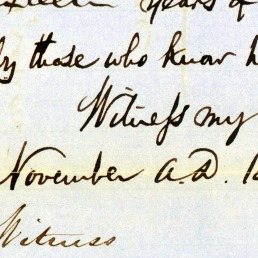 years of
by those who know h
Witneſs my
November A.D. 1
Witness